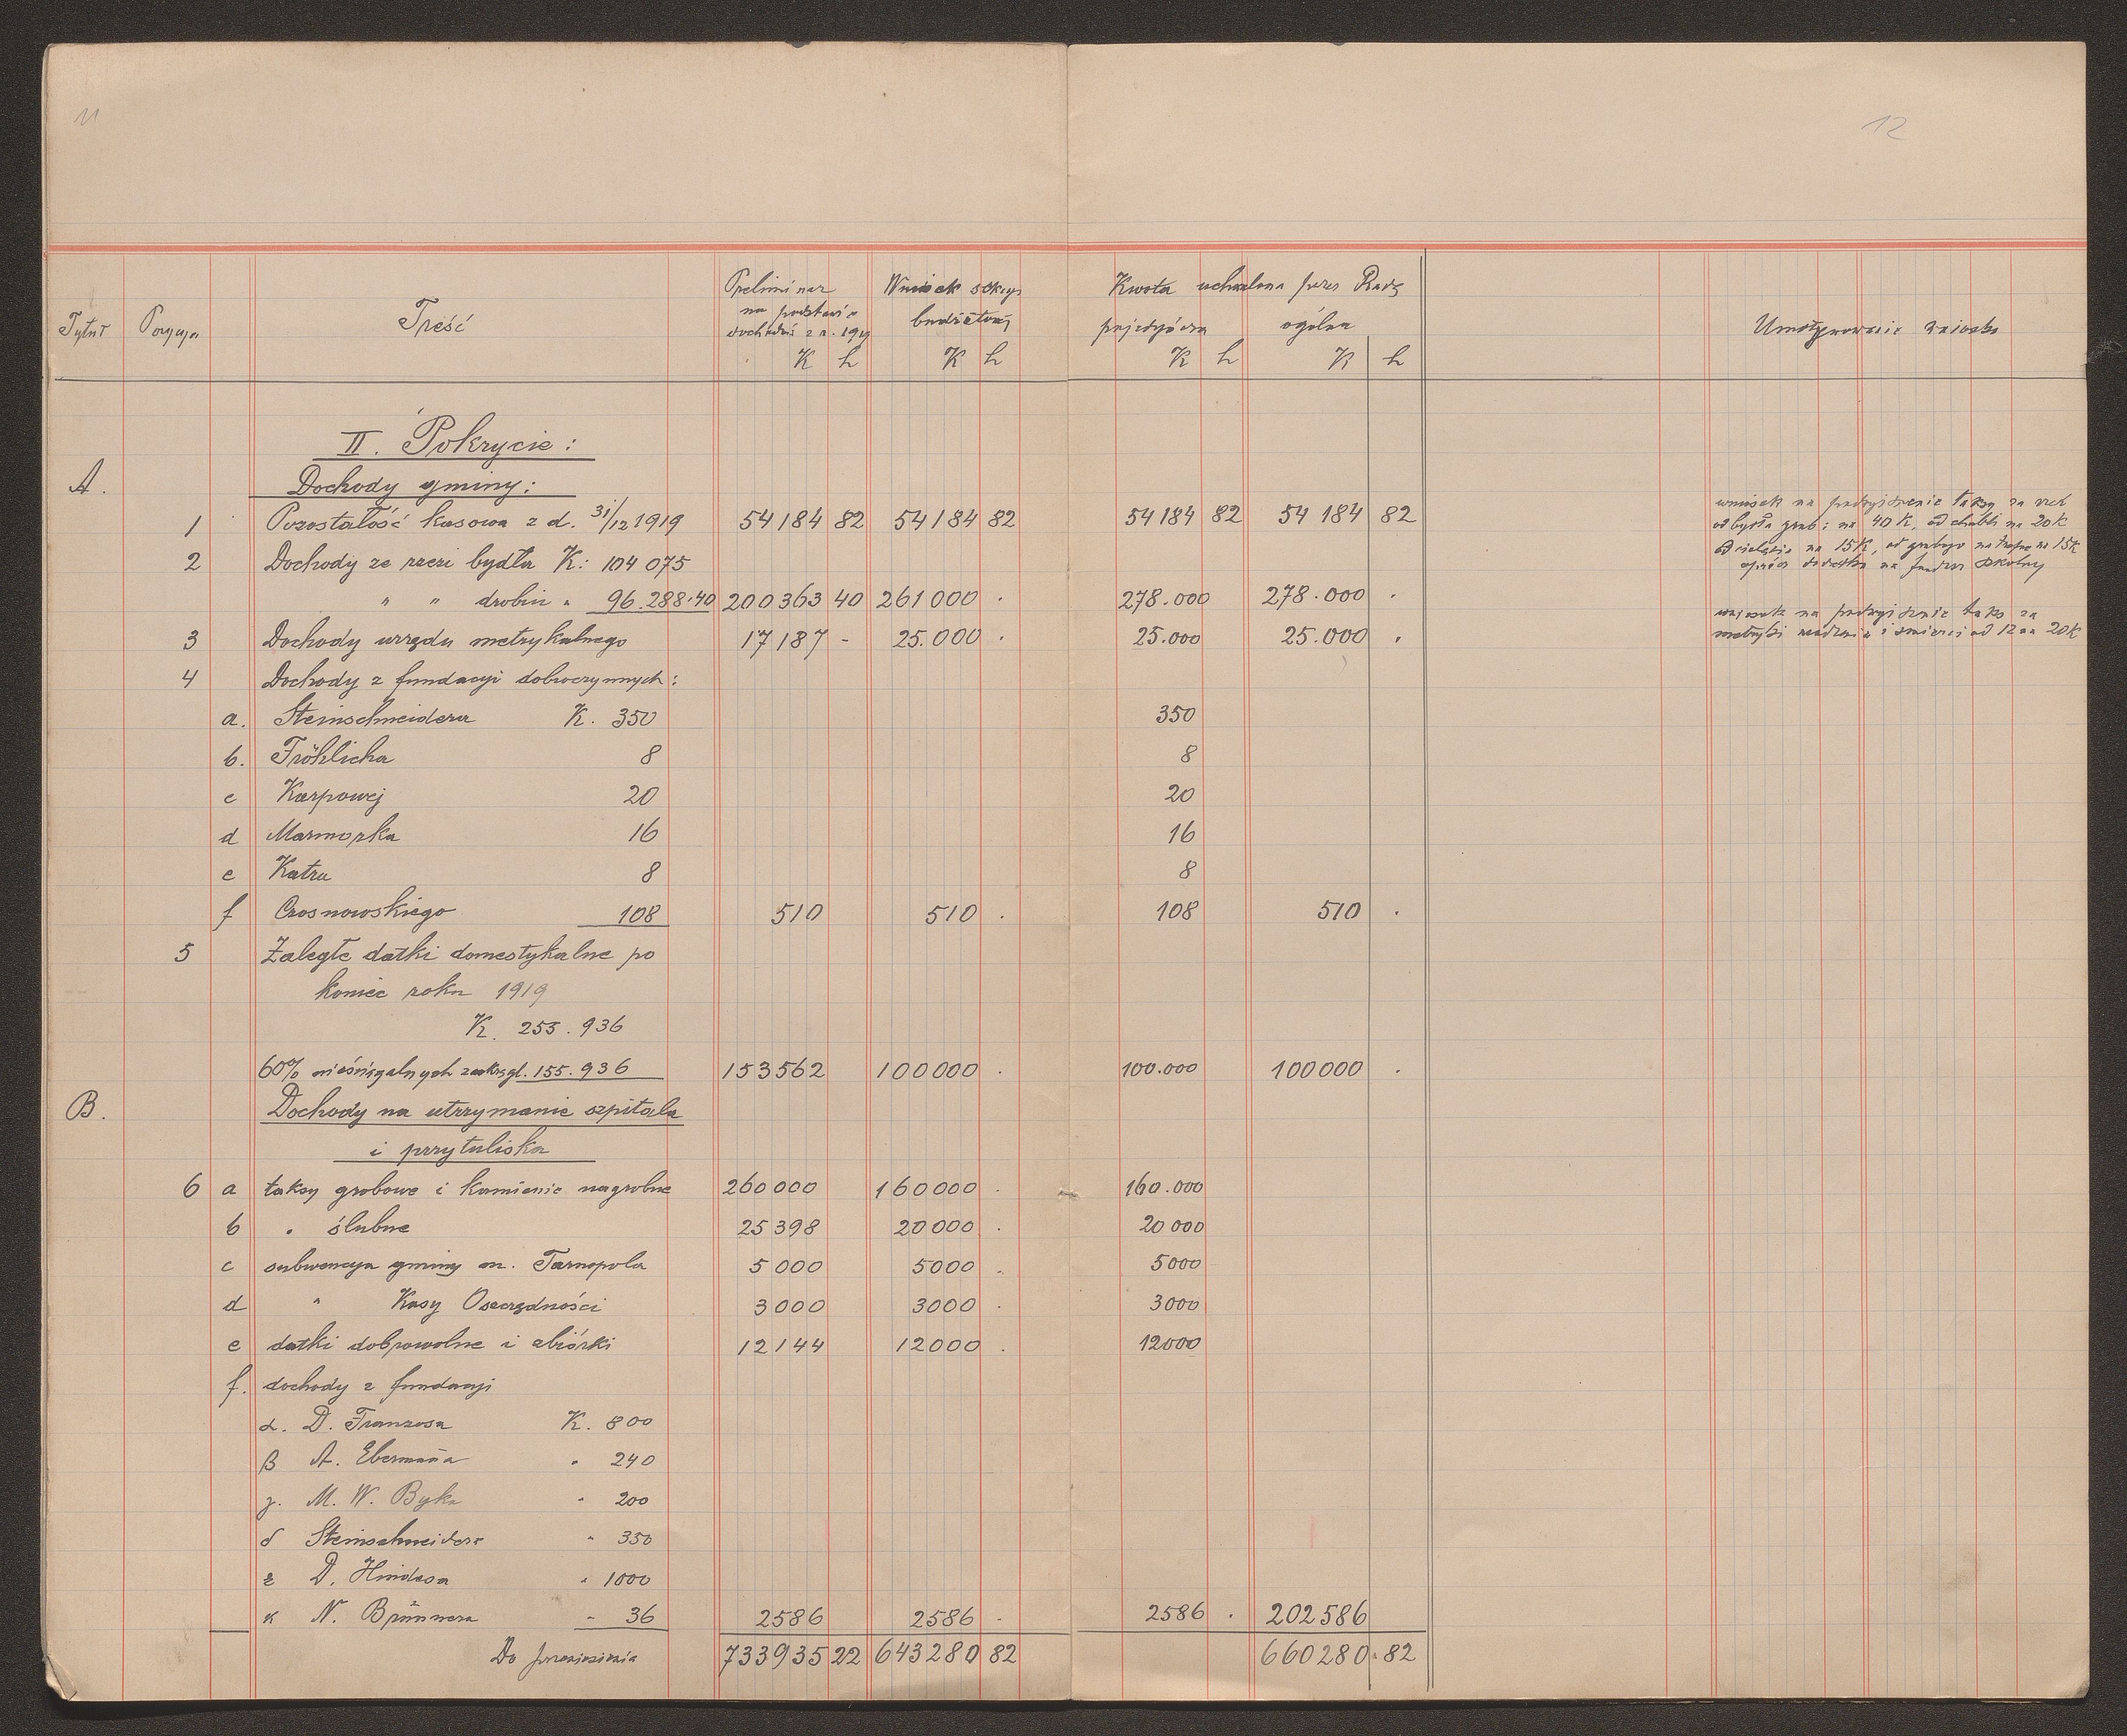 11
12
Tytuł Pozycja Treść Preliminarz na podstawie dochodów z r. 1919 K h Wniosek sekcyi budżetowej K h Kwota uchwalona przez Radę pojedyńcza K h ogólna K h Umotywowanie wniosku
II. Pokrycie:
A. Dochody gminy:
1 Pozostałość kasowa z d. 31/12 1919 54184 82 54184 82 54184 82 54184 82
wniosek na podwyższenie taksy za rzeź
od bydła grub: na 40 K, od na 20 K
od cielęcia na 15 K, od na 15 K
oprócz dodatku na fundusz szkolny
2 Dochody ze rzezi bydła K: 104 075
" " drobiu " 96.288.40 200363 40 261000 . 278.000 278.000 .
wniosek na podwyższenie taks za
metryki urodzenia i śmierci od 12 na 20 K
3 Dochody urzędu metrykalnego 17187 - 25.000 . 25.000 25.000 .
4 Dochody z fundacyi dobroczynnych:
a. Steinschneidera K. 350 350
b. Fröhlicha 8 8
c Karpowej 20 20
d Marmorka 16 16
e Katza 8 8
f Czosnowskiego 108 510 510 . 108 510 .
5 Zaległe datki domestykalne po
koniec roku 1919
K. 255.936
60% nieściągalnych zaokrągl. 155.936 153562 100000 . 100.000 100000 .
B. Dochody na utrzymanie szpitala
i przytuliska
6 a taksy grobowe i kamienie nagrobne 260000 160000 . 160.000
b " ślubne 25398 20000 . 20000
c subwencya gminy m. Tarnopola 5000 5000 . 5000
d " Kasy Oszczędności 3000 3000 . 3000
e datki dobrowolne i zbiórki 12144 12000 . 12000
f. dochody z fundacyi
α. D. Franzosa K. 800
β A. Ebermana " 240
γ. M. W. Byka " 200
δ Steinschneidera " 350
ε D. Hindesa " 1000
κ N. Brünnera " 36 2586 2586 - 2586 . 202586
Do przeniesienia 733935 22 643280 82 660280.82